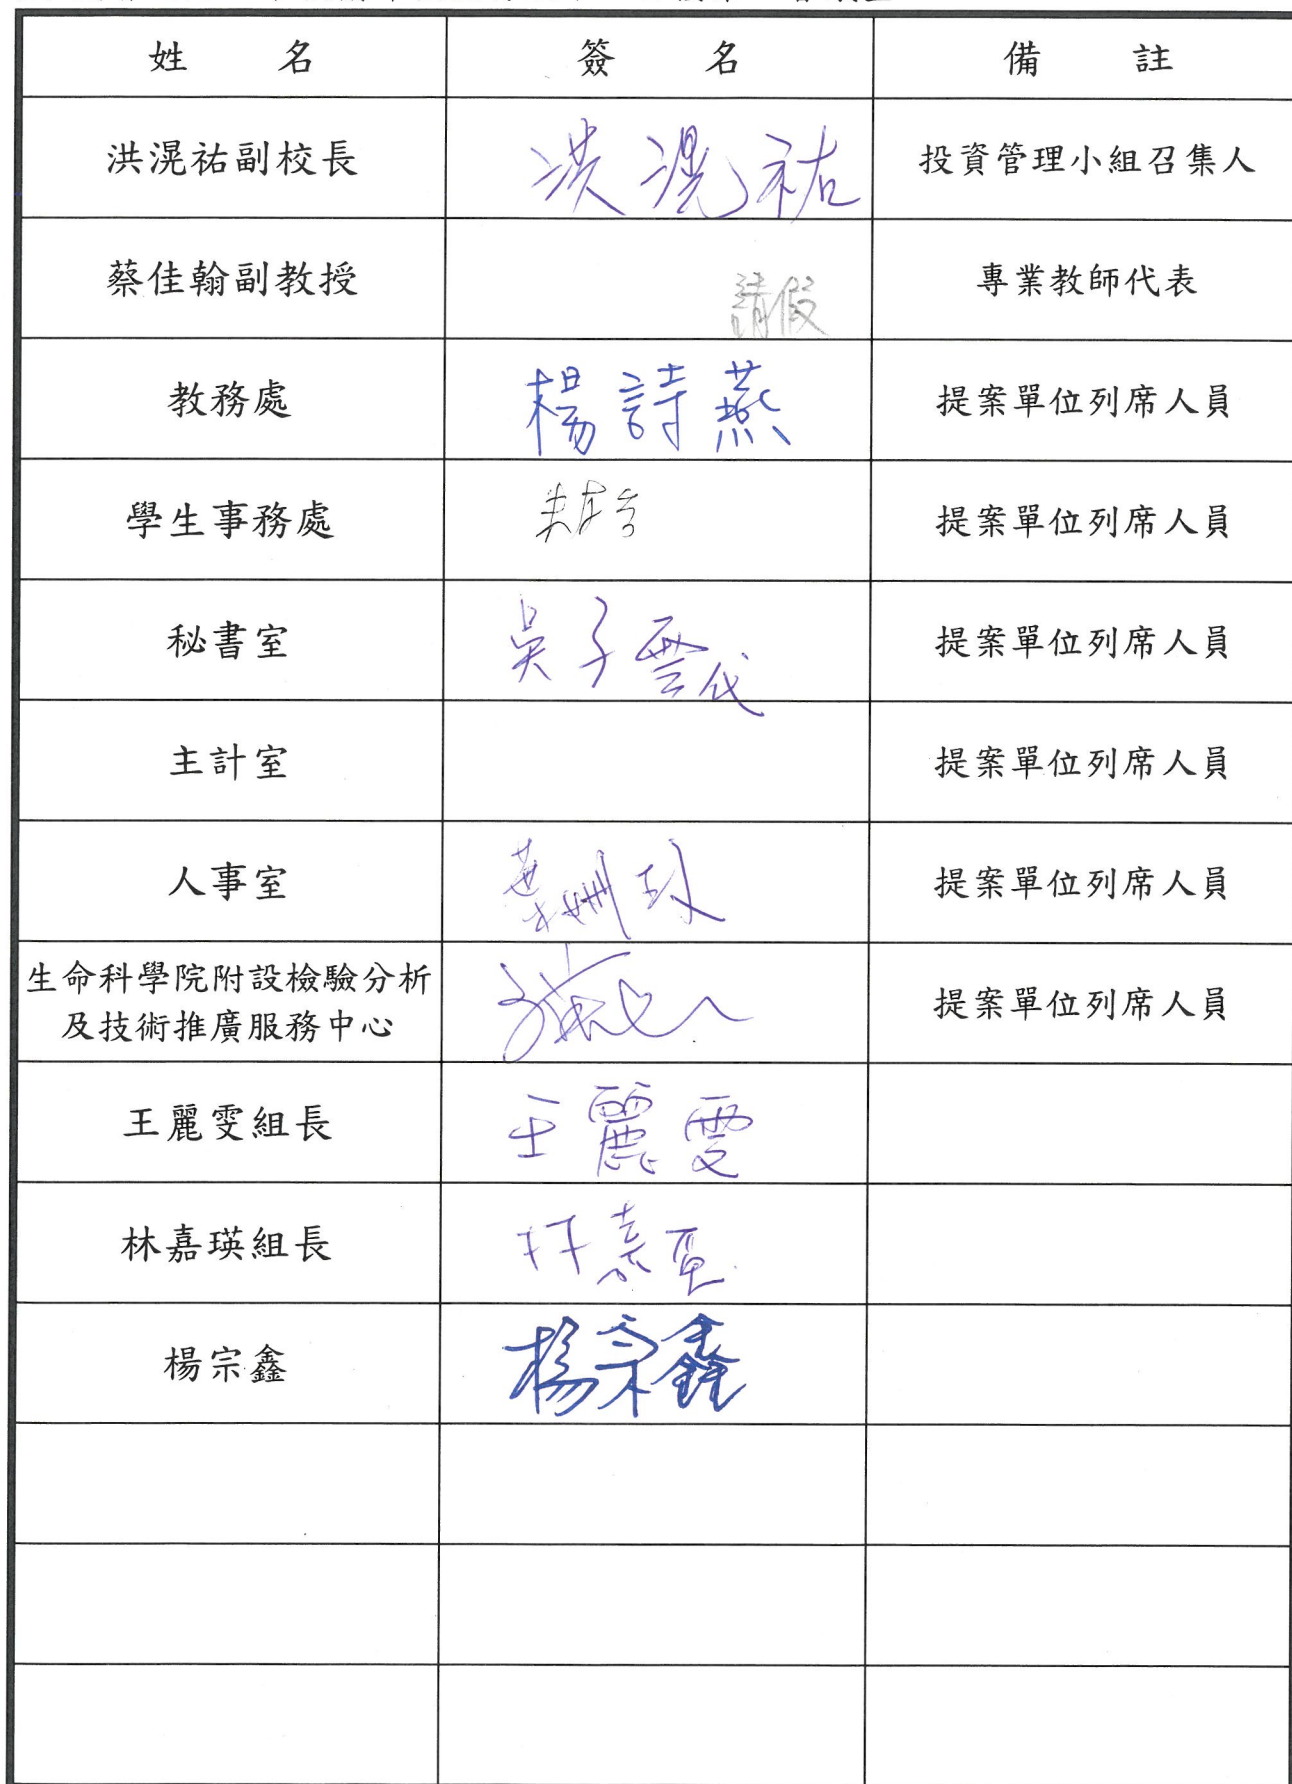 姓 名 簽 名 備 註
洪滉祐副校長 洪滉祐 投資管理小組召集人
蔡佳翰副教授 請假 專業教師代表
教務處 楊詩燕 提案單位列席人員
學生事務處 提案單位列席人員
秘書室 吳子雲代 提案單位列席人員
主計室 提案單位列席人員
人事室 提案單位列席人員
生命科學院附設檢驗分析
及技術推廣服務中心 提案單位列席人員
王麗雯組長 王麗雯
林嘉瑛組長 林嘉瑛
楊宗鑫 楊宗鑫